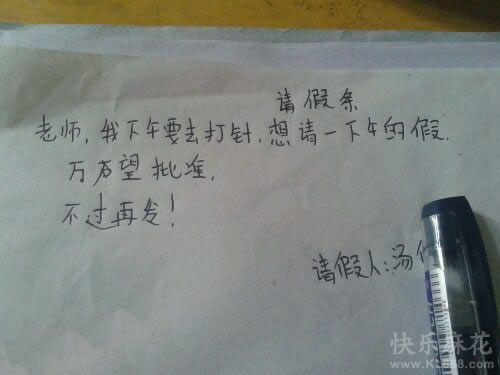 请假条
老师,我下午要去打针,想请一下午的假.
万右望批准,
不过再发!
请假人:汤
快乐麻花